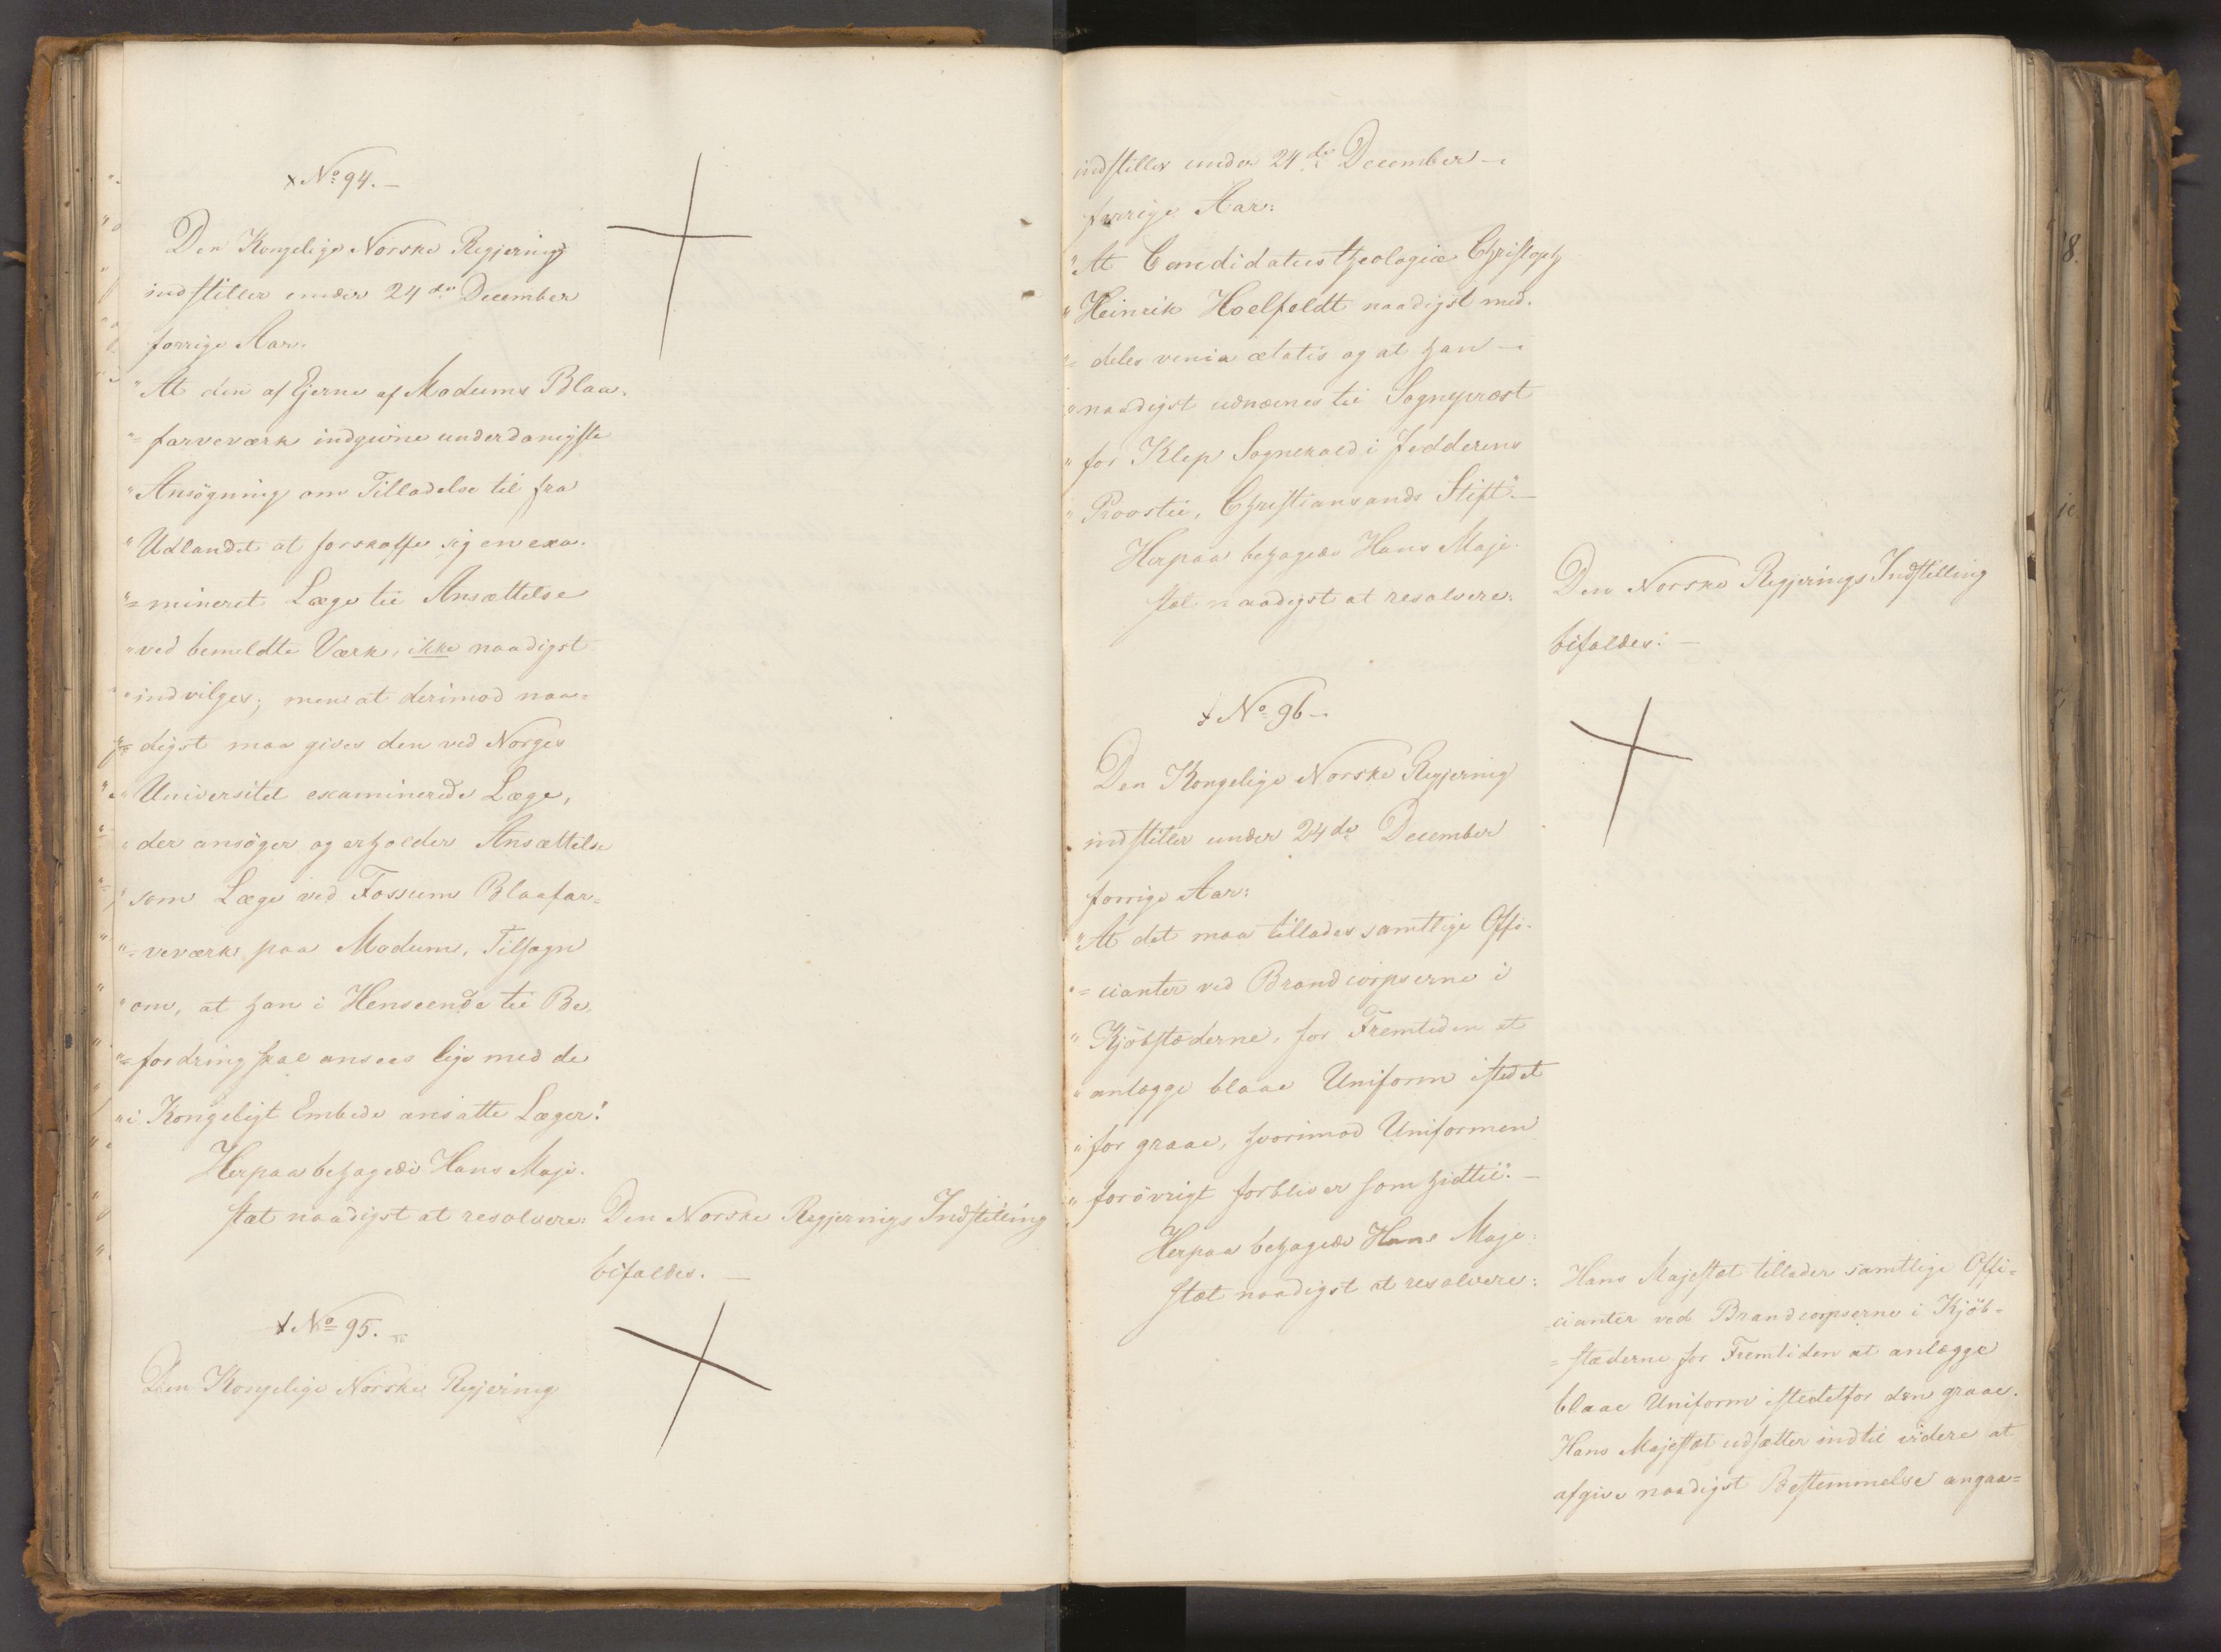 x No 94.-
Den Kongelige Norske Regjering
indstiller under 24de December
forrige Aar.
"At den af Ejerne af Modums Blaa-
"=farveværk indgivne underdanigste
"Ansögning om Tilladelse til fra
"Udlandet at forskaffe sig en exa-
"=mineret Læge til Ansættelse
"ved bemeldte Værk, ikke naadigst
"indvilges; men at derimod naa=
"=digst maa gives den ved Norges
"Universitet examinerede Læge,
"der ansöger og erholder Ansættelse
"som Læge ved Fossum Blaafar=
"=veværk paa Modum, Tilsagn
"om, at han i Henseende til Be-
"=fordring skal ansees lige med de
"i Kongeligt Embede ansatte Læger."
Herpaa behagede Hans Maje-
stæt naadigst at resolvere: Den Norske Regjerings Indstilling
bifaldes. -
x No 95. -
Den Kongelige Norske Regjering
indstiller under 24de December -
forrige Aar:
"At Candidatus theologiæ Christoph
"Heinrik Hoelfeldt naadigst med-
"=deles venia ætatis og at han -
"naadigst udnævnes til Sognepræst
"for Klep Sognekald i Jedderens
"Provstie, Christiansands Stift". -
Herpaa behagede Hans Maje-
stæt naadigst at resolvere:
Den Norske Regjerings Indstilling
bifaldes. -
x No 96 -
Den Kongelige Norske Regjering
indstiller under 24de December
forrige Aar:
"At det maa tillades samtlige Offi-
"=cianter ved Brandcorpserne i
"Kjöbstæderne, for Fremtiden at
"anlægge blaae Uniform istedet
"for graae, hvorimod Uniformen
"forövrigt forbliver som hidtil". -
Herpaa behagede Hans Maje-
stæt naadigst at resolvere:
Hans Majestæt tillader samtlige Offi=
=cianter ved Brandcorpserne i Kjöb=
=stæderne for Fremtiden at anlægge
blaae Uniform istedetfor den graae.
Hans Majestæt udsætter indtil videre at
afgive naadigst Bestemmelse angaa=